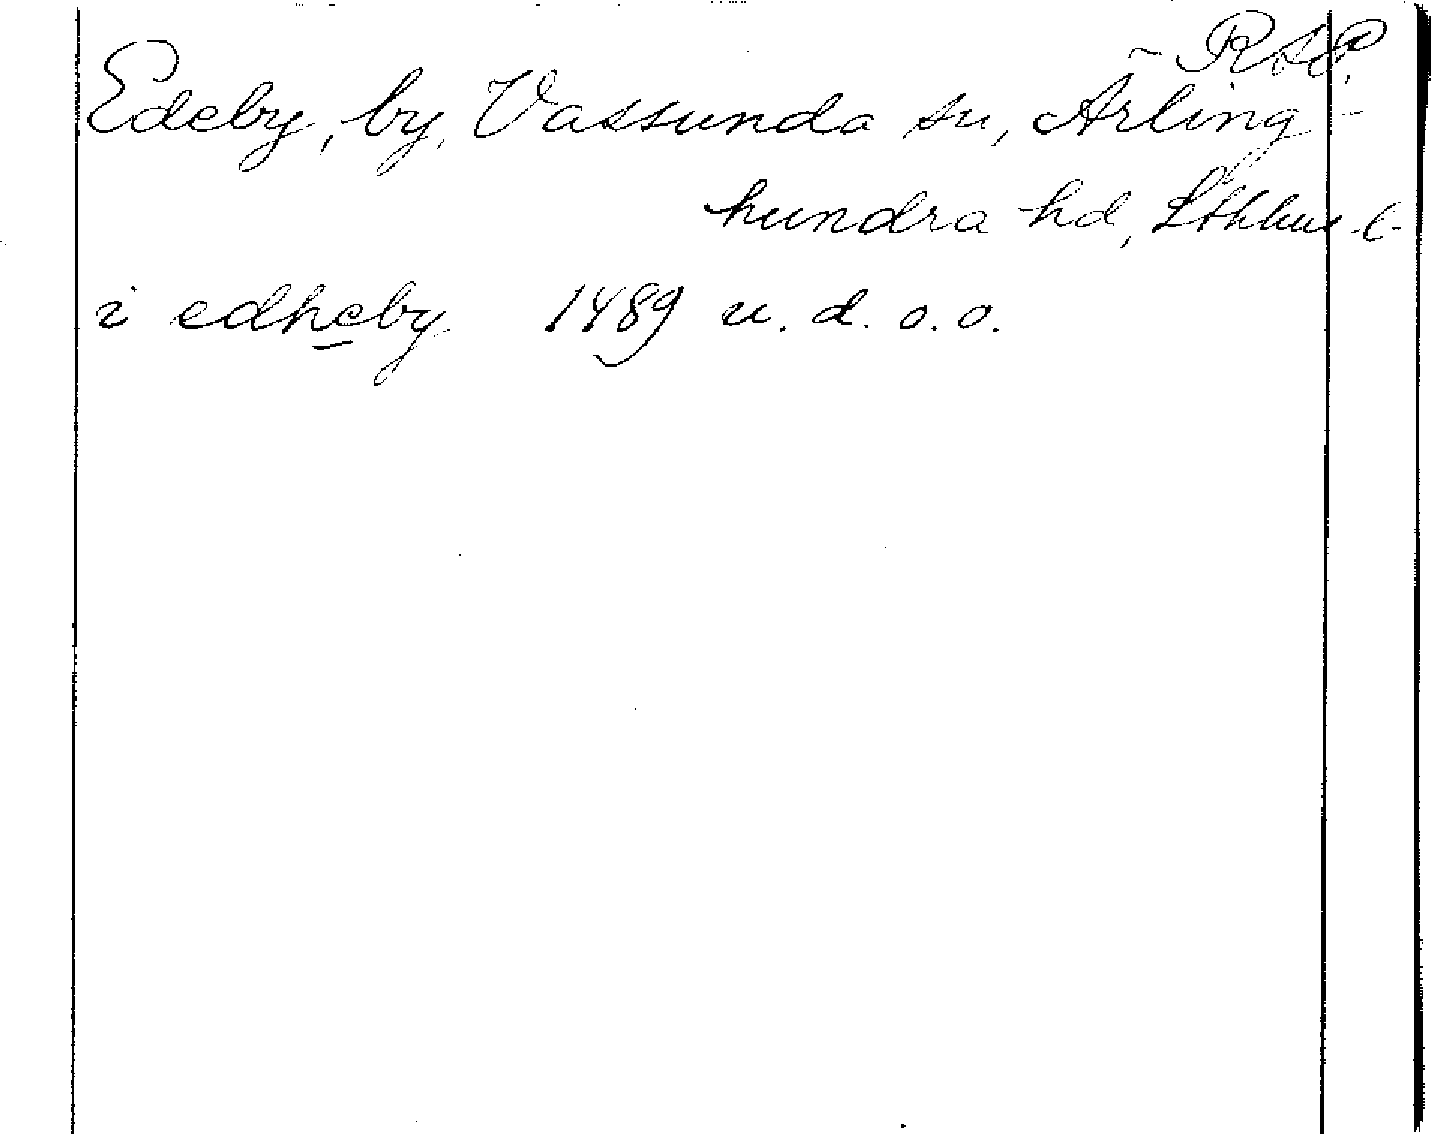 RAP.
Edeby, by, Vassunda sn, Ärling-
hundra hd, Sthlms l.
i edheby 1489 u. d. o. o.